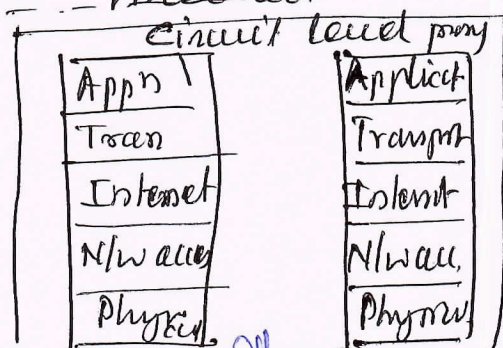 Circuit level proxy
Appn
Tran
Internet
N/w access
Physical
Applicat
Transport
Internet
N/w acc.
Physical